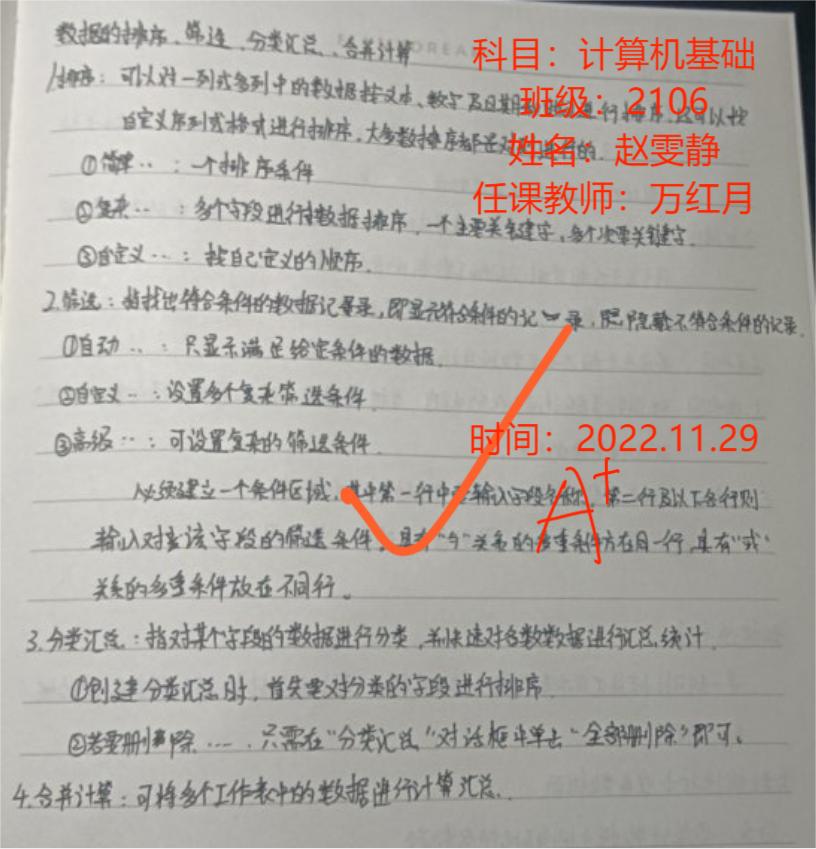 数据的排序、筛选、分类汇总、合并计算
科目：计算机基础
1排序：可以对一列或多列中的数据按文本、数字及日期进行排序，还可以按
班级：2106
自定义序列或格式进行排序，大多数排序都是对进行的.
姓名：赵雯静
①简单··：一个排序条件
任课教师：万红月
②复杂··：多个字段进行数据排序，一个主要关键字，多个次要关键字.
③自定义···：按自己定义的顺序.
2.筛选：指找出符合条件的数据记录，即显示符合条件的记录，隐藏不符合条件的记录.
①自动··：只显示满足给定条件的数据.
②自定义··：设置多个复杂筛选条件
③高级··：可设置复杂的筛选条件.
时间：2022.11.29
A+
必须建立一个条件区域，其中第一行中输入字段名称，第二行及以下各行则
输入对应该字段的筛选条件，具有“与”关系的多重条件放在同一行，具有“或”
关系的多重条件放在不同行。
3.分类汇总：指对某个字段的数据进行分类，并快速对各数数据进行汇总统计.
①创建分类汇总时，首先要对分类的字段进行排序.
②若要删除····，只需在“分类汇总”对话框中单击“全部删除”即可.
4.合并计算：可将多个工作表中的数据进行计算汇总.